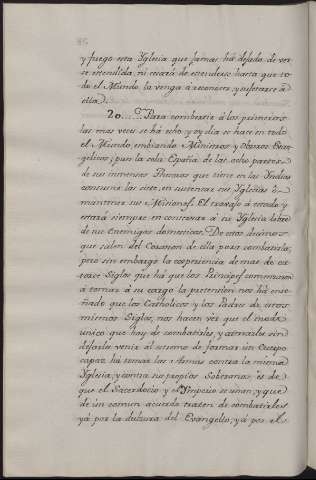 y fuego esta Yglesia que jamas há dejado de ver
se estendida, ni cesará de estenderse hasta que to
do el Mundo, la venga á reconocer, y sujetarse á
ella).
20..... Para combatir á los primeros
las mas veces se há echo, y oy dia se hace en todo
el Mundo, embiando Ministros y Obreros Evan
gelicos; pues la sola España de las ocho partes
de sus inmensos Thesoros que tiene en las Yndias
consume las siete, en sustentar sus Yglesias ó
mantener sus Misiones. El travajo á estado y
estará siempre en conservar á su Yglesia libre
de sus Enemigos domesticos. De estos ultimos
que salen del Corazon de ella para combatirla,
pero sin embargo la experiencia de mas de ca
torce Siglos que há que los Principes comenzaron
á tomar á su cargo la pretension nos há ense
ñado que los Catholicos y los Padres de estos
mismos Siglos, nos hacen ver que el modo
unico que hay de combatirlos, y atraerlos sin
dejarlos venir al extremo de formar un Cuerpo
capaz há tomar las Armas contra la misma
Yglesia, y contra sus propios Soberanos, es de
que el Sacerdocio y el Ymperio se unan, y que
de un comun acuerdo traten de combatirlos
yá por la dulzura del Evangelio, yá por el